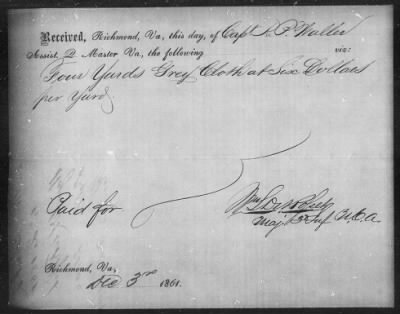 Received, Richmond, Va, this day, of Capt R P Waller
Assist Q Master Va, the following viz:
Four Yards Grey Cloth at Six Dollars
per Yard
Paid for
Wm
Maj &
Richmond, Va,
Dec 3rd 1861.